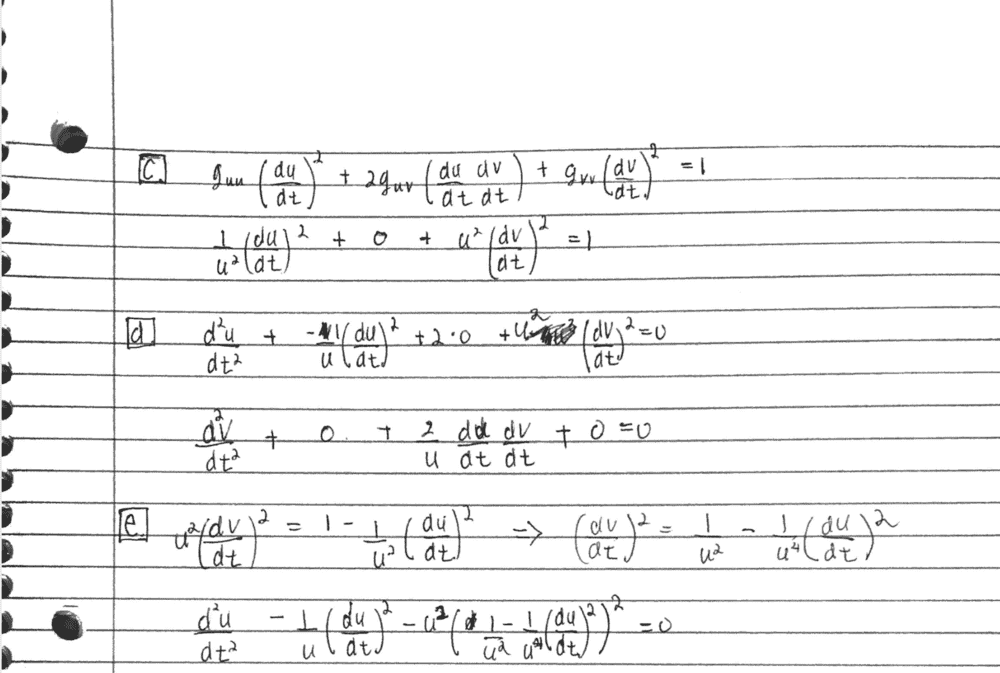 c. g_uu (du/dt)^2 + 2g_uv (du dv / dt dt) + g_vv (dv/dt)^2 = 1
1/u^2 (du/dt)^2 + 0 + u^2 (dv/dt)^2 = 1
d. d^2u/dt^2 + -1/u (du/dt)^2 + 2·0 + u^2 (dv/dt)^2 = 0
d^2v/dt^2 + 0 + 2/u du/dt dv/dt + 0 = 0
e. u^2 (dv/dt)^2 = 1 - 1/u^2 (du/dt)^2 -> (dv/dt)^2 = 1/u^2 - 1/u^4 (du/dt)^2
d^2u/dt^2 - 1/u (du/dt)^2 - u^2 (1/u^2 - 1/u^4 (du/dt)^2)^2 = 0